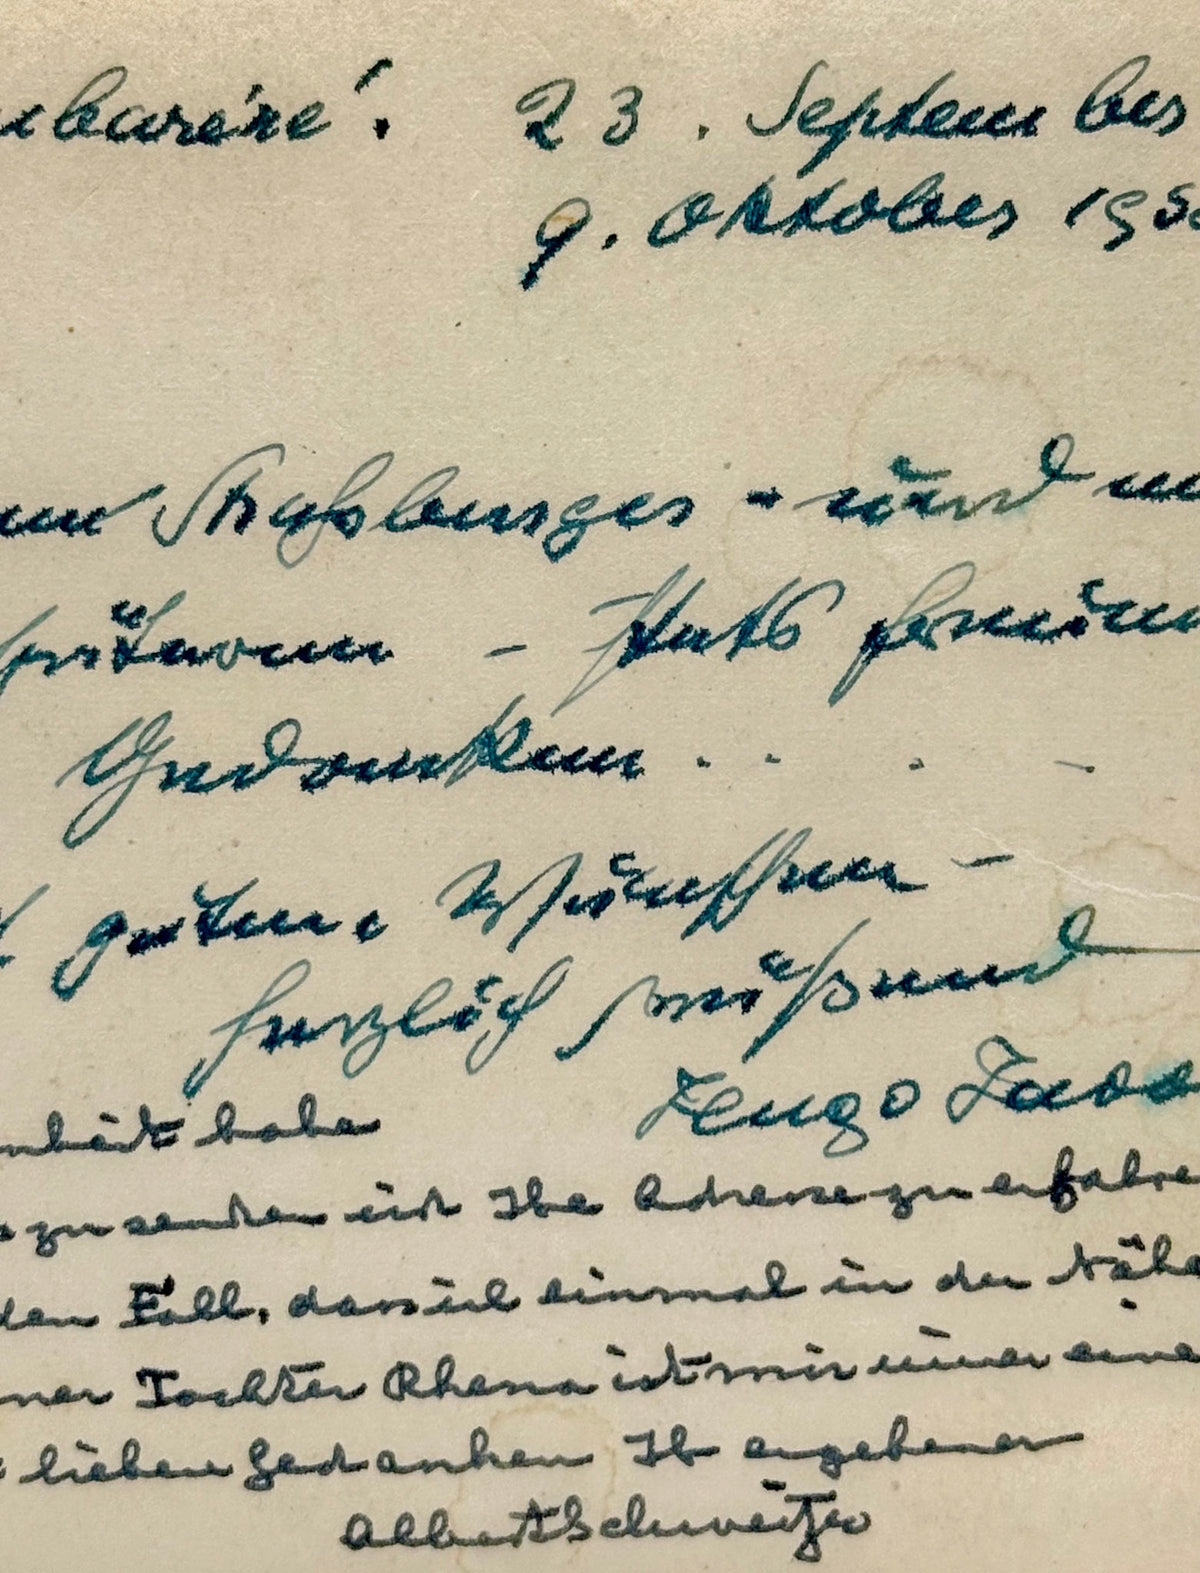 23. September
9. Oktober 19
Straßburger - und
- stets
Gedanken . . . -
guten Wünschen -
herzlich grüßend
Hugo
habe
zu senden und Ihre Adresse zu erfahre
den Fall, dass ich einmal in der Nähe
ner Tochter Rhena ist mir immer eine
lieben Gedanken Ihr ergebener
Albert Schweitzer